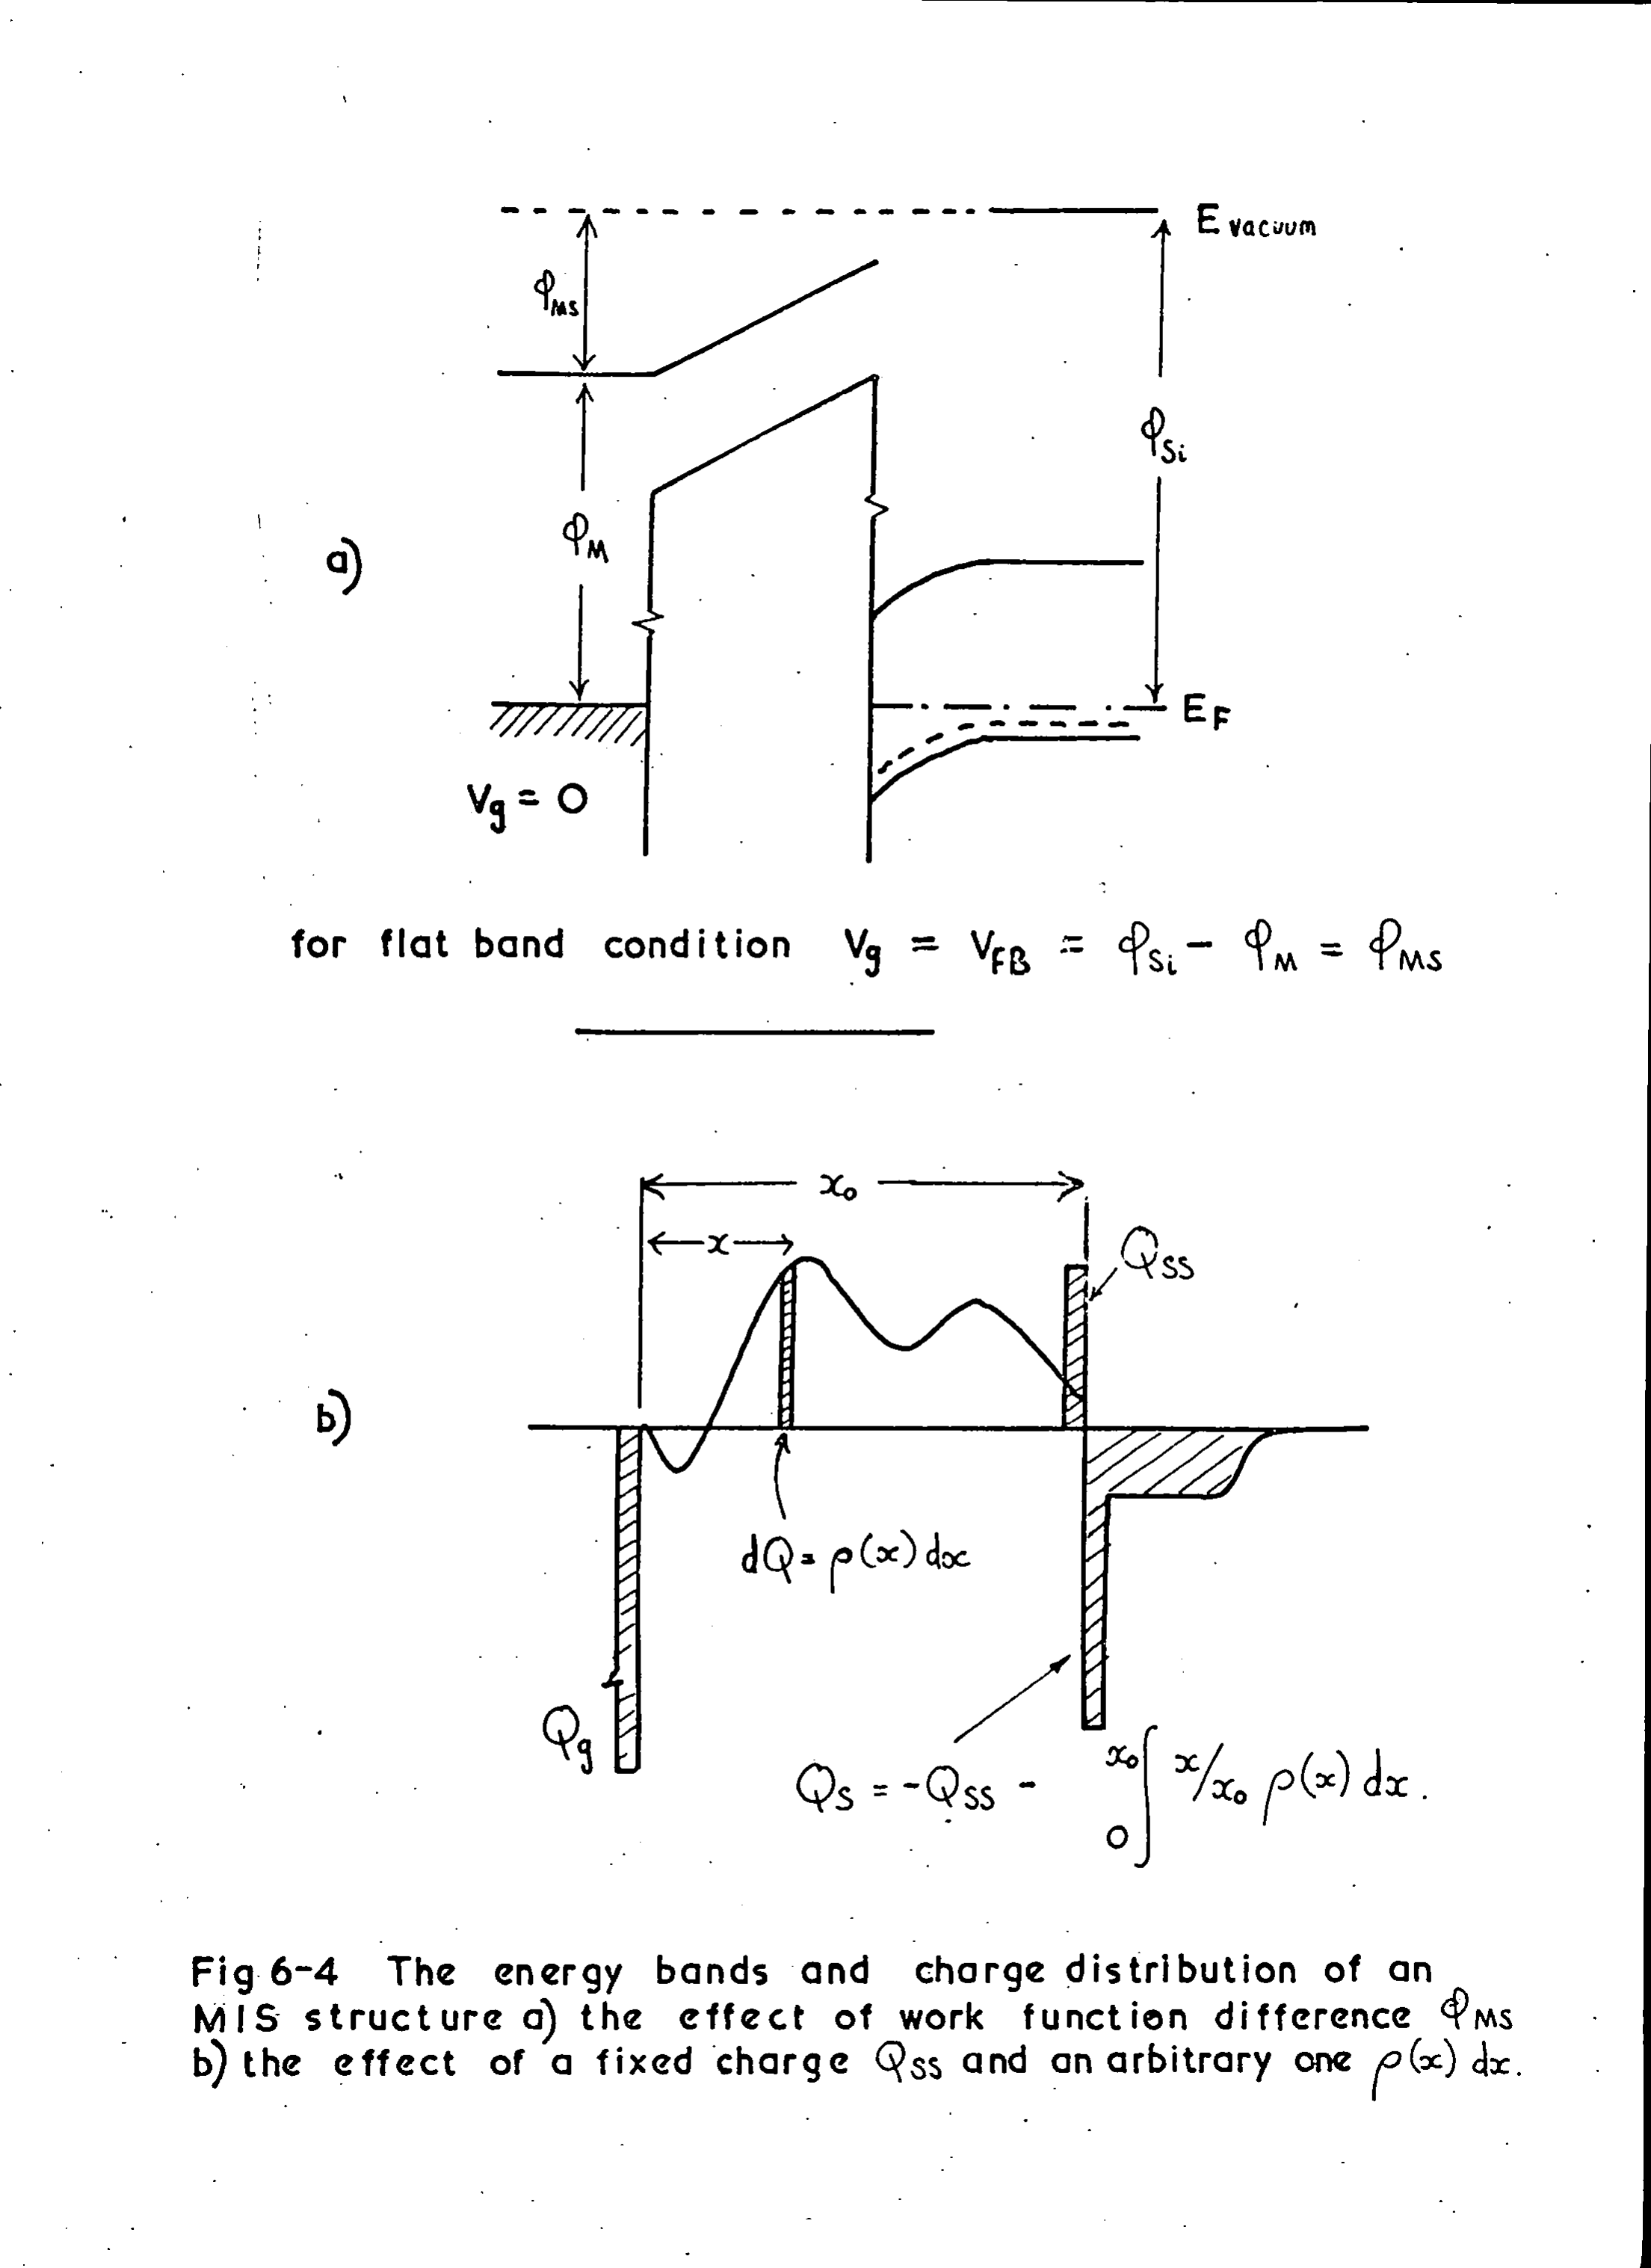 E vacuum
φMS
φSi
φM
a)
EF
Vg = O
for flat band condition Vg = VFB = φSi - φM = φMS
x₀
x
QSS
b)
dQ = ρ(x) dx
Qg
QS = -QSS - ₀∫ˣ⁰ x/x₀ ρ(x) dx.
Fig 6-4 The energy bands and charge distribution of an
MIS structure a) the effect of work function difference φMS
b) the effect of a fixed charge QSS and an arbitrary one ρ(x) dx.